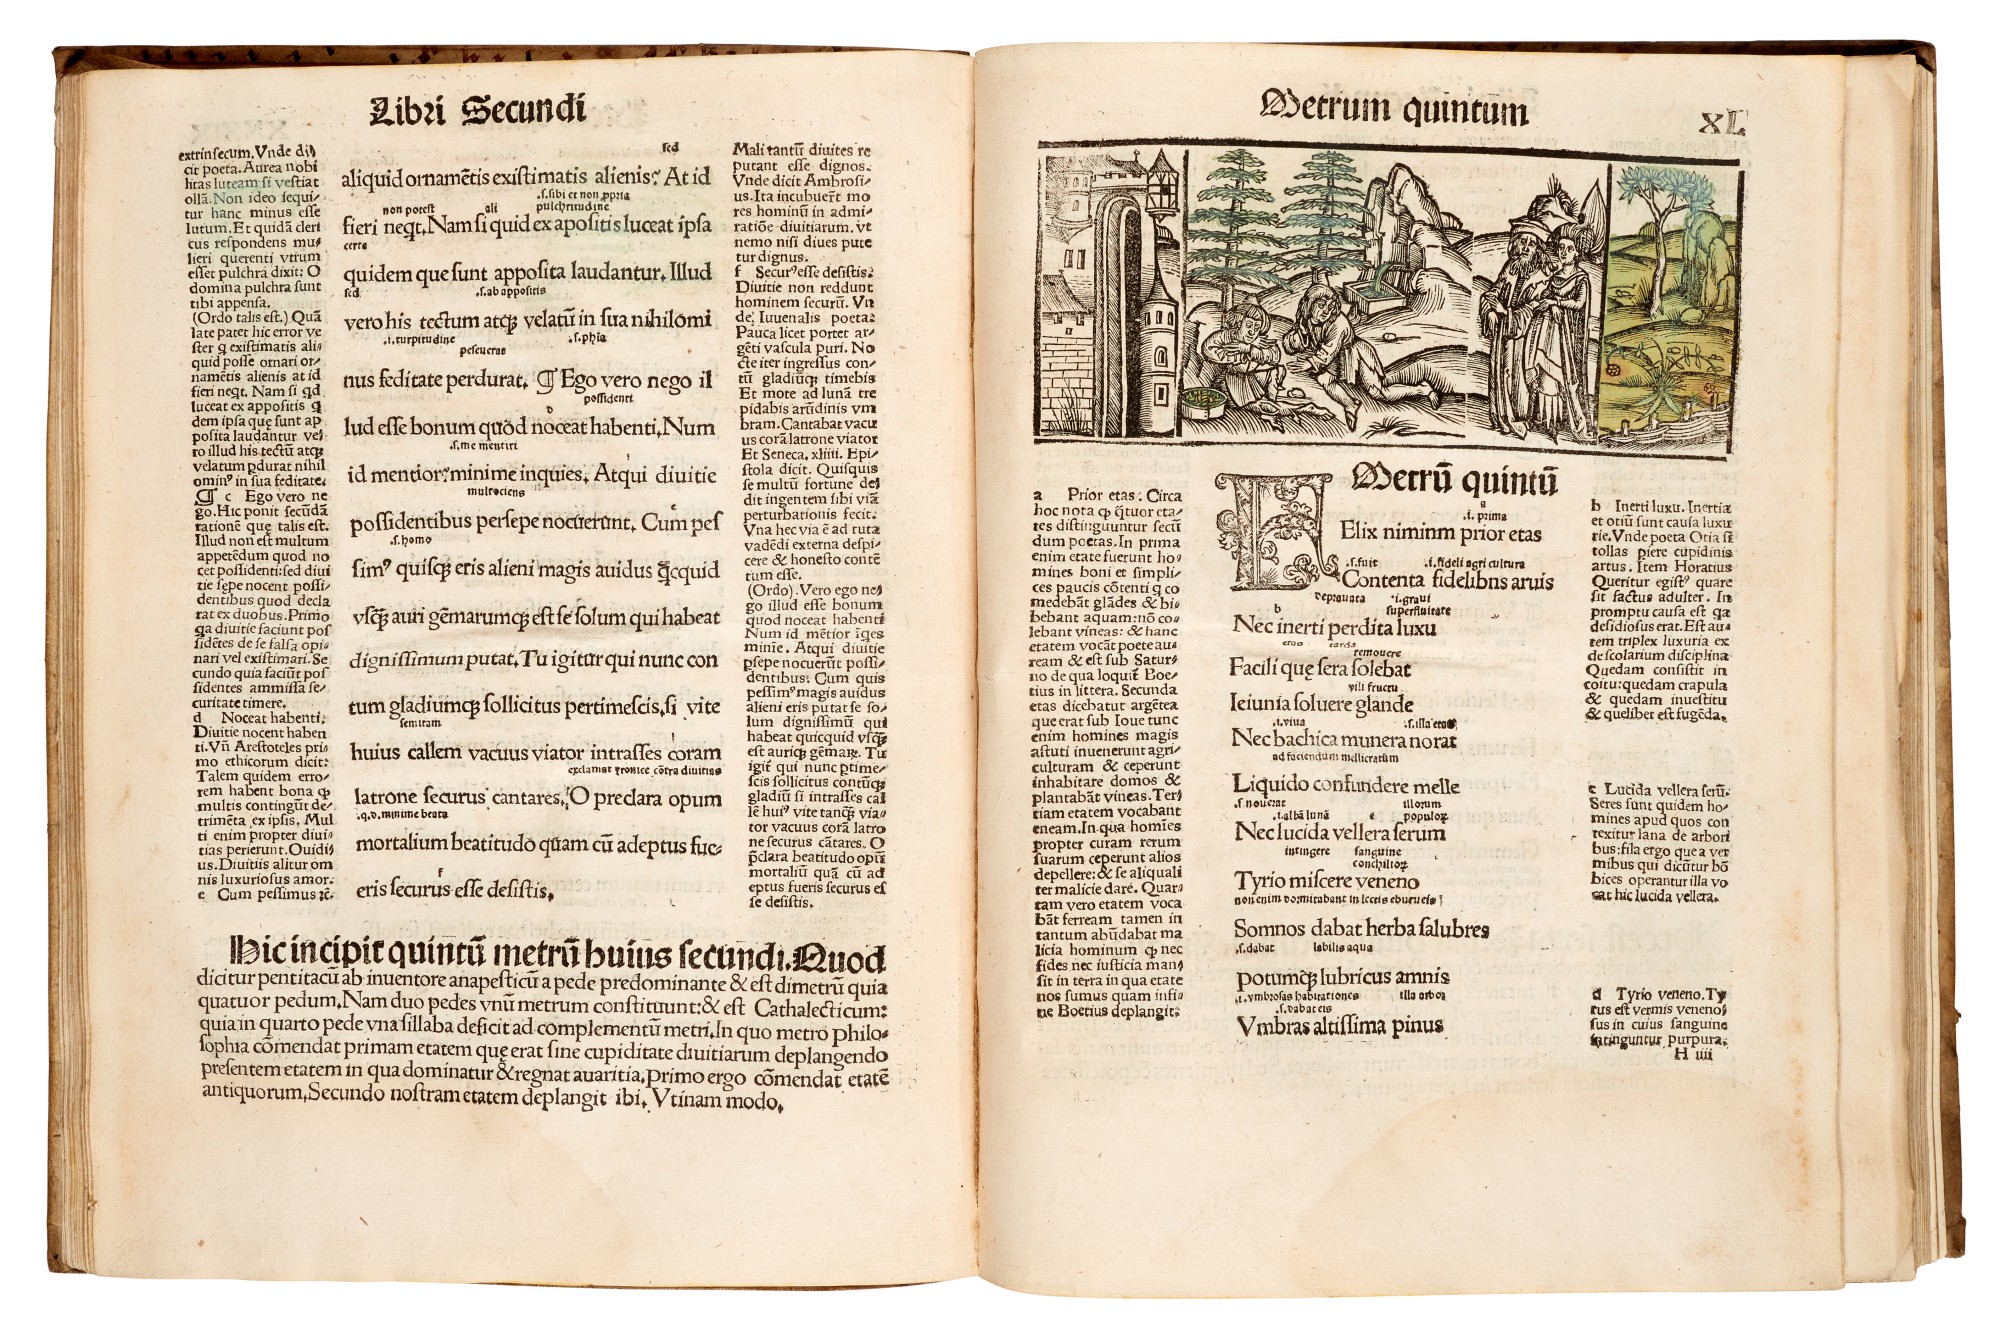 Libri Secundi
extrinsecum. Vnde di
cit poeta. Aurea nobi
litas luteam si vestiat
ollā. Non ideo sequi
tur hanc minus esse
lutum. Et quidā cleri
cus respondens mu
lieri querenti vtrum
esset pulchra dixit: O
domina pulchra sunt
tibi appensa.
(Ordo talis est.) Quā
late patet hic error ve
ster q existimatis ali
quid posse ornari or
namētis alienis at id
fieri neqt. Nam si qd
luceat ex appositis q
dem ipsa quę sunt ap
posita laudantur ve
ro illud his tectū atqꝫ
velatum pdurat nihil
omin⁹ in sua feditate.
¶ c Ego vero ne
go. Hic ponit secūdā
rationē quę talis est.
Illud non est multum
appetēdum quod no
cet possidenti: sed diui
tie sepe nocent possi
dentibus quod decla
rat ex duobus. Primo
qa diuitie faciunt pos
sidētes de se falsa opi
nari vel existimari. Se
cundo quia faciūt pos
sidentes ammissa se
curitate timere.
d Noceat habenti.
Diuitie nocent haben
ti. Vñ Arestoteles pri
mo ethicorum dicit:
Talem quidem erro
rem habent bona q
multis contingūt de
trimēta ex ipsis. Mul
ti enim propter diui
tias perierunt. Ouidi
us. Diuitiis alitur om
nis luxuriosus amor.
e Cum pessimus ꝛē.
sed
aliquid ornamētis existimatis alienis? At id
.s. sibi et non ppria
non potest ali pulchritudine
fieri neqt. Nam si quid ex apositis luceat ipsa
certe
quidem que sunt apposita laudantur. Illud
sed .s. ab appositis
vero his tectum atqꝫ velatū in sua nihilomi
.i. turpitudine .s. phia
perseuerat
nus feditate perdurat. ¶ Ego vero nego il
possidenti
lud esse bonum quod noceat habenti. Num
.s. me mentiri
id mentior? minime inquies. Atqui diuitie
multociens
possidentibus persepe nocuerunt. Cum pes
.s. homo
sim⁹ quisqꝫ eris alieni magis auidus qcquid
vsqꝫ auri gēmarumqꝫ est se solum qui habeat
dignissimum putat. Tu igitur qui nunc con
tum gladiumqꝫ sollicitus pertimescis, si vite
semitam
huius callem vacuus viator intrasses coram
exclamat yronice cōtra diuitias
latrone securus cantares. O preclara opum
.q.d. minime beata
mortalium beatitudo quam cū adeptus fue
f
eris securus esse desistis.
Mali tantū diuites re
putant esse dignos.
Vnde dicit Ambrosi
us. Ita incubuerūt mo
res hominū in admi
ratiōe diuitiarum, vt
nemo nisi diues pute
tur dignus.
f Secur⁹ esse desistis.
Diuitie non reddunt
hominem securū. Vn
de Iuuenalis poeta:
Pauca licet portet ar
gēti vascula puri. No
cte iter ingressus con
tū gladiūqꝫ timebis
Et mote ad lunā tre
pidabis arūdinis vm
bram. Cantabat vacu
us corā latrone viator
Et Seneca. xliiii. Epi
stola dicit. Quisquis
se multū fortune de
dit ingentem sibi viā
perturbationis fecit.
Vna hec via ē ad tuta
vadēdi externa despi
cere & honesto contē
tum esse.
(Ordo). Vero ego ne
go illud esse bonum
quod noceat habenti
Num id mētior īqes
minīe. Atqui diuitie
psepe nocuerūt possi
dentibus: Cum quis
pessim⁹ magis auidus
alieni eris putat se so
lum dignissimū qui
habeat quicquid vsqꝫ
est auriqꝫ gēmaꝝ. Tu
igit qui nunc ptime
scis sollicitus contūqꝫ
gladiū si intrasses cal
lē hui⁹ vite tanqꝫ via
tor vacuus corā latro
ne securus cātares. O
pclara beatitudo opū
mortaliū quā cū ad
eptus fueris securus es
se desistis.
Hic incipit quintū metrū huius secundi. Quod
dicitur pentitacū ab inuentore anapesticū a pede predominante & est dimetrū quia
quatuor pedum. Nam duo pedes vnū metrum constituunt: & est Cathalecticum:
quia in quarto pede vna sillaba deficit ad complementū metri. In quo metro Philo
sophia cōmendat primam etatem quę erat sine cupiditate diuitiarum deplangendo
presentem etatem in qua dominatur & regnat auaritia. Primo ergo cōmendat etatē
antiquorum. Secundo nostram etatem deplangit ibi. Vtinam modo.
Metrum quintum
XL
a Prior etas. Circa
hoc nota q qtuor eta
tes distinguuntur secū
dum poetas. In prima
enim etate fuerunt ho
mines boni et simpli
ces paucis cōtenti q co
medebāt glādes & bi
bebant aquam: nō co
lebant vineas: & hanc
etatem vocāt poete au
ream & est sub Satur
no de qua loquiť Boe
tius in littera. Secunda
etas dicebatur argētea
que erat sub Ioue tunc
enim homines magis
astuti inuenerunt agri
culturam & ceperunt
inhabitare domos &
plantabāt vineas. Ter
tiam etatem vocabant
eneam. In qua homīes
propter curam rerum
suarum ceperunt alios
depellere: & se aliquali
ter malicie daré. Quar
tam vero etatem voca
bāt ferream tamen in
tantum abūdabat ma
licia hominum q nec
fides nec iusticia man
sit in terra in qua etate
nos sumus quam infi
ne Boetius deplangit.
Metrū quintū
a
.i. prima
FElix niminm prior etas
.s. fuit .i. fideli agri cultura
Contenta fidelibns aruis
deprauata .i. graui
b superfluitate
Nec inerti perdita luxu
eius tarda remouere
Facili quę sera solebat
vili fructu
Ieiunia soluere glande
.i. viua .s. illa etas
Nec bachica munera norat
ad faciendum mellicratum
Liquido confundere melle
.s. nouerat illorum
.i. albā lunā c populoꝝ
Nec lucida vellera serum
intingere sanguine
conchilioꝝ
Tyrio miscere veneno
non enim dormitabant in lectis eburneis
Somnos dabat herba salubres
.s. dabat labilis aqua
Potumqꝫ lubricus amnis
.i. vmbrosas habitationes illa arbor
.s. dabat eis
Vmbras altissima pinus
b Inerti luxu. Inertia
et otiū sunt causa luxu
rie. Vnde poeta Otia si
tollas piere cupidinis
artus. Item Horatius
Queritur egist⁹ quare
sit factus adulter. In
promptu causa est qa
desidiosus erat. Est au
tem triplex luxuria ex
de scolarium disciplina
Quedam consistit in
coitu: quedam crapula
& quedam inuestitu
& quelibet est fugēda.
c Lucida vellera serū.
Seres sunt quidem ho
mines apud quos con
texitur lana de arbori
bus: fila ergo que a ver
mibus qui dicūtur bō
bices operantur illa vo
cat hic lucida vellera.
d Tyrio veneno. Ty
rus est vermis veneno
sus in cuius sanguine
intinguntur purpura.
H iiii